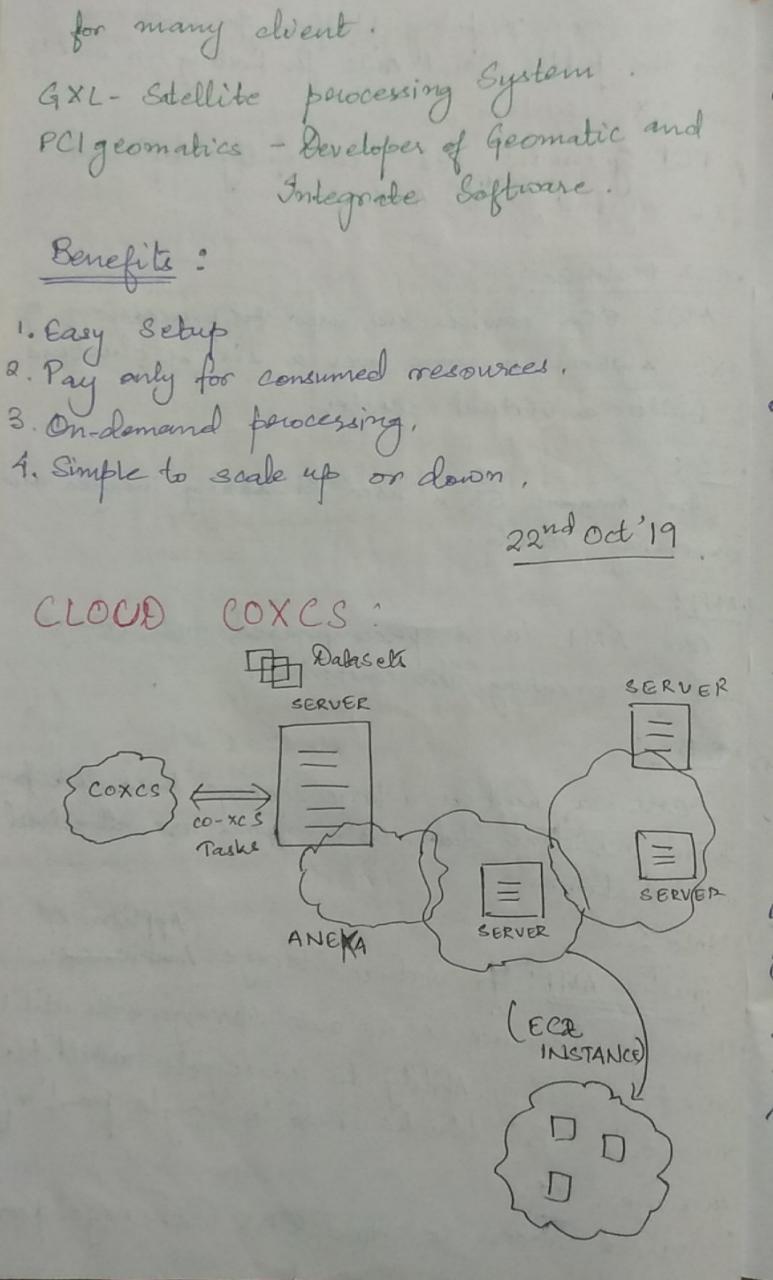 for many client.
GXL - Satellite processing System.
PCI geomatics - Developer of Geomatic and
Integrate Software.
Benefits :
1. Easy Setup
2. Pay only for consumed resources.
3. On-demand processing.
4. Simple to scale up or down.
22nd Oct'19
CLOUD COXCS :
Datasets
SERVER
SERVER
COXCS
CO-XCS
Tasks
SERVER
SERVER
ANEKA
(EC2
INSTANCE)